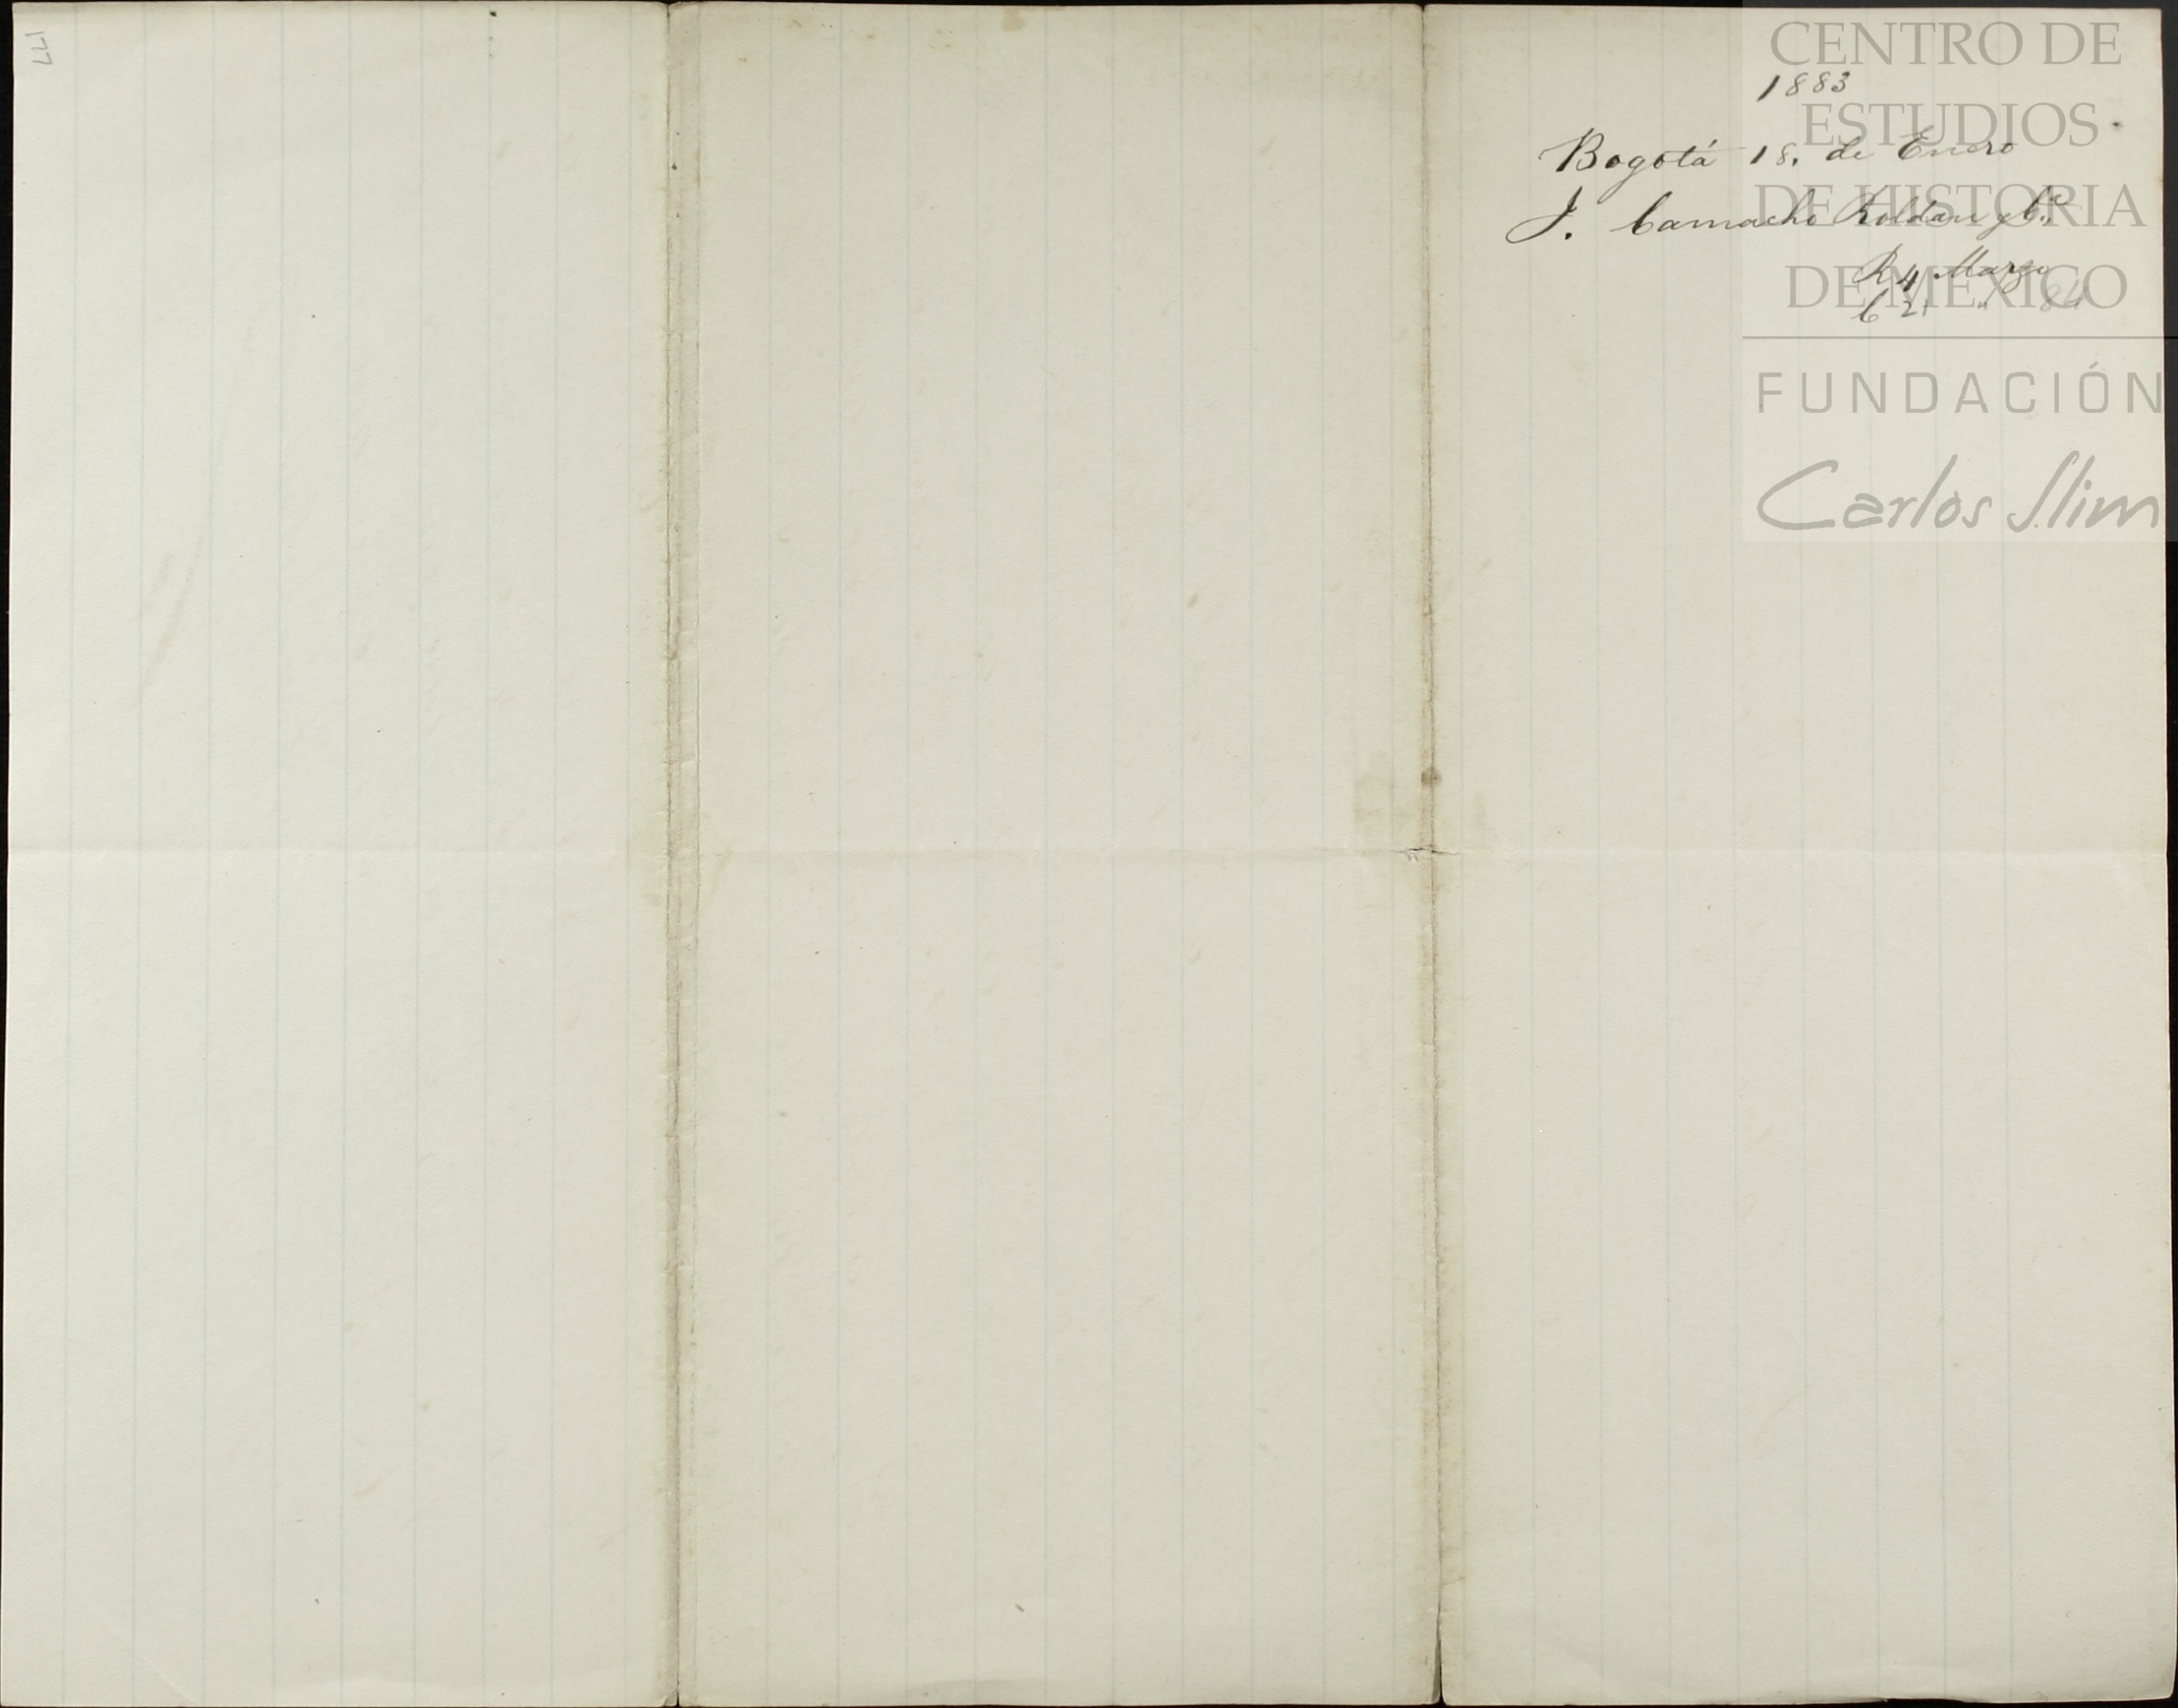 177
1883
Bogotá 18. de Enero
J. Camacho Roldan y Cª
R 4 Marzo
C 21 " 84
CENTRO DE
ESTUDIOS
DE HISTORIA
DE MÉXICO
FUNDACIÓN
Carlos Slim